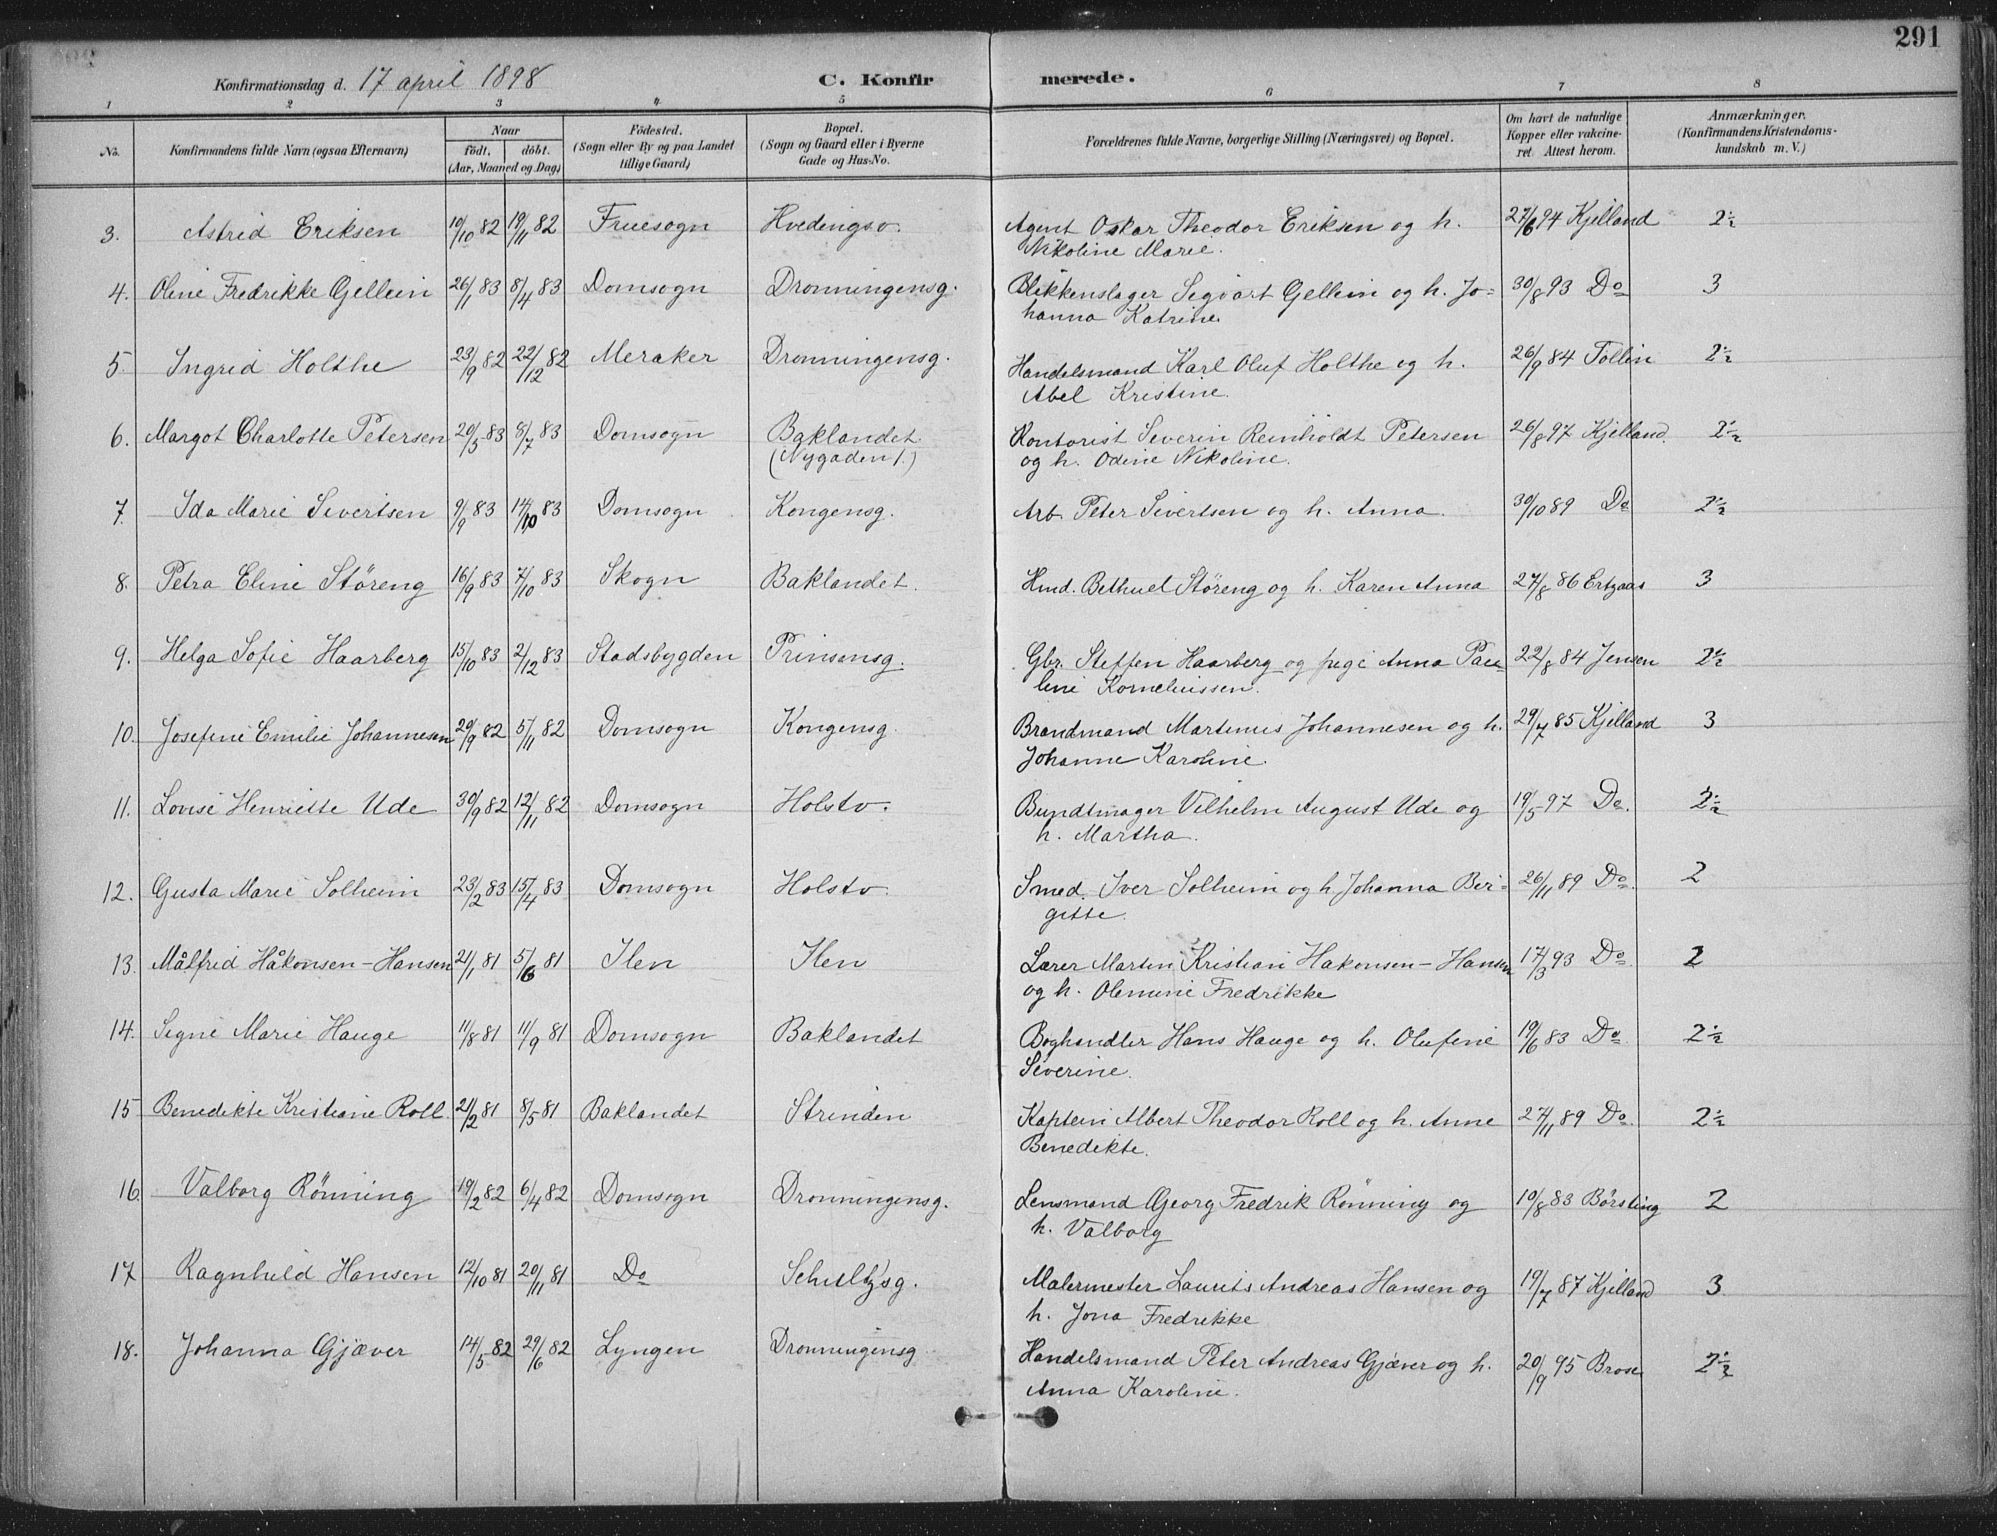 291
Konfirmationsdag d. 17 april 1898 C. Konfirmerede.
1 2 3 4 5 6 7 8
No. Konfirmandens fulde Navn (ogsaa Efternavn) Naar Födt. döbt. (Aar, Maaned og Dag) Födested. (Sogn eller By og paa Landet tillige Gaard) Bopæl. (Sogn og Gaard eller i Byerne Gade og Hus-No. Forældrenes fulde Navne, borgerlige Stilling (Næringsvei) og Bopæl. Om havt de naturlige Kopper eller vakcineret. Attest herom. Anmærkninger. (Konfirmandens Kristendomskundskab m. V.)
3. Astrid Eriksen 19/10 82 19/11 82 Fruesogn Hvedingsv. Agent Oskar Theodor Eriksen og h. 27/6 94 Kjelland 2½
Nikoline Marie.
4. Oline Fredrikke Gellein 26/1 83 8/4 83 Domsogn Dronningensg. Blikkenslager Sigvart Gellein og h. Jo- 30/8 93 Do 3
hanna Katrine
5. Ingrid Holthe 23/9 82 22/12 82 Meraker Dronningensg. Handelsmand Karl Oluf Holthe og h. 26/9 84 Tollin 2½
Abel Kristine.
6. Margot Charlotte Petersen 20/5 83 8/7 83 Domsogn Baklandet Kontorist Severin Reinholdt Petersen 26/8 97 Kjelland. 2½
(Nygaden 1.) og h. Odine Nikoline.
7. Ida Marie Sivertsen 9/9 83 14/10 83 Domsogn Kongensg. Arb. Peter Sivertsen og h. Anna. 30/10 89 Do 2½
8. Petra Eline Störeng 16/9 83 7/10 83 Skogn Baklandet. Hmd. Bethuel Störeng og h. Karen Anna 27/8 86 Ertzaas 3
9. Helga Sofie Haarberg 15/10 83 2/12 83 Stadsbygden Prinsensg. Gbr. Steffen Haarberg og pige Anna Pau- 22/8 84 Jensen 2½
line Korneliussen.
10. Josefine Emilie Johannesen 29/9 82 5/11 82 Domsogn Kongensg. Brandmand Martinus Johannesen og h. 29/7 85 Kjelland 3
Johanne Karoline.
11. Lovise Henriette Ude 30/9 82 12/11 82 Domsogn Holstv. Bundtmager Vilhelm August Ude og 19/5 97 Do. 2½
h. Martha.
12. Gusta Marie Solheim 23/2 83 15/4 83 Domsogn Holstv. Smed. Iver Solheim og h. Johanna Ber- 26/11 89 Do. 2
gitte.
13. Målfrid Håkonsen-Hansen 21/1 81 5/6 81 Ilen Ilen Lærer Martin Kristian Hakonsen-Hansen 17/3 93 Do. 2
og h. Olemine Fredrikke
14. Signe Marie Hauge 11/8 81 11/9 81 Domsogn Baklandet Boghandler Hans Hauge og h. Olufine 19/6 83 Do. 2½
Severine.
15 Benedikte Kristiane Roll. 21/2 81 8/5 81 Baklandet Strinden Kaptein Albert Theodor Roll og h. Anne 27/11 89 Do. 2½
Benedikte.
16. Valborg Rönning 19/2 82 6/4 82 Domsogn Dronningensg. Lensmand Georg Fredrik Rönning og 10/8 83 Börsting 2
h. Valborg
17 Ragnhild Hansen 12/10 81 20/11 81 Do Schultz'sg. Malermester Laurits Andreas Hansen og 19/7 87 Kjelland 3.
h. Jona Fredrikke
18. Johanna Gjæver 14/5 82 29/6 82 Lyngen Dronningensg Handelsmand Peter Andreas Gjæver og h. 20/9 95 Brose 2½
Anna Karoline.